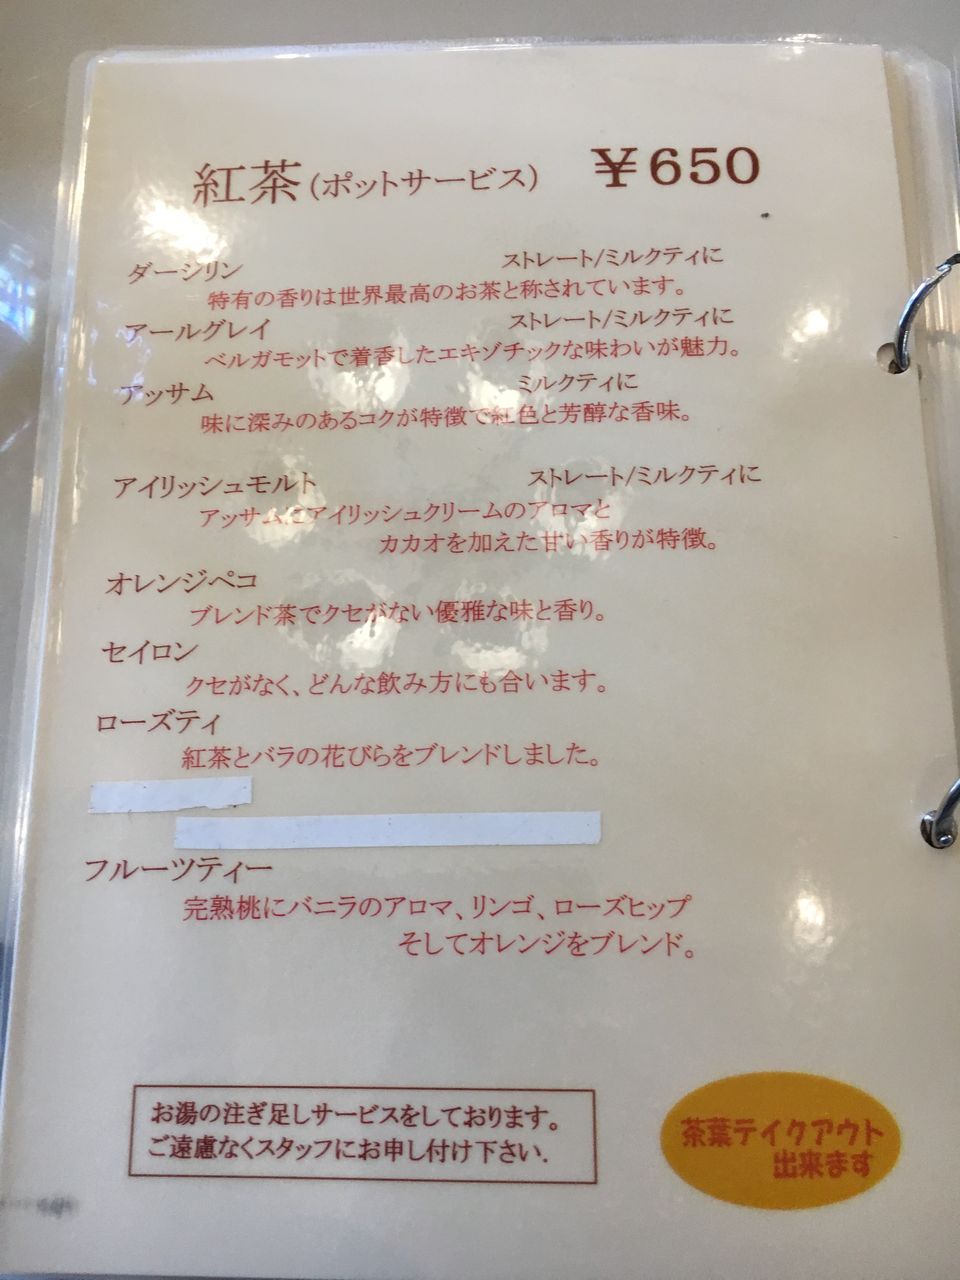 紅茶(ポットサービス) ￥650
ダージリン ストレート/ミルクティに
特有の香りは世界最高のお茶と称されています。
アールグレイ ストレート/ミルクティに
ベルガモットで着香したエキゾチックな味わいが魅力。
アッサム ミルクティに
味に深みのあるコクが特徴で紅色と芳醇な香味。
アイリッシュモルト ストレート/ミルクティに
アッサムにアイリッシュクリームのアロマと
カカオを加えた甘い香りが特徴。
オレンジペコ
ブレンド茶でクセがない優雅な味と香り。
セイロン
クセがなく、どんな飲み方にも合います。
ローズティ
紅茶とバラの花びらをブレンドしました。
フルーツティー
完熟桃にバニラのアロマ、リンゴ、ローズヒップ
そしてオレンジをブレンド。
お湯の注ぎ足しサービスをしております。
ご遠慮なくスタッフにお申し付け下さい.
茶葉テイクアウト
出来ます